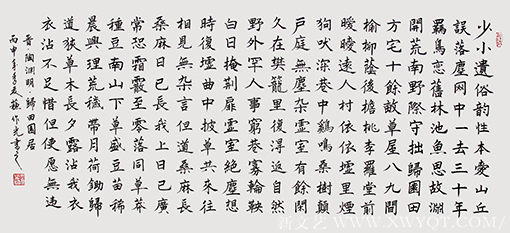 少小遺俗韵性本愛山丘
誤落塵网中一去三十年
羈鳥戀舊林池魚思故淵
開荒南野際守拙歸園田
方宅十餘畝草屋八九間
榆柳蔭後檐桃李羅堂前
曖曖遠人村依依墟里煙
狗吠深巷中鷄鳴桑樹顛
户庭無塵雜虛室有餘閑
久在樊籠里復得返自然
野外罕人事窮巷寡輪鞅
白日掩荆扉虛室絕塵想
時復墟曲中披草共來往
相見無杂言但道桑麻長
桑麻日已長我土日已廣
常恐霜霰至零落同草莽
種豆南山下草盛豆苗稀
晨興理荒穢帶月荷鋤歸
道狹草木長夕露沾我衣
衣沾不足惜但使愿無违
晋陶渊明歸田園居
丙申年
新文艺 WWW.XWYQT.COM